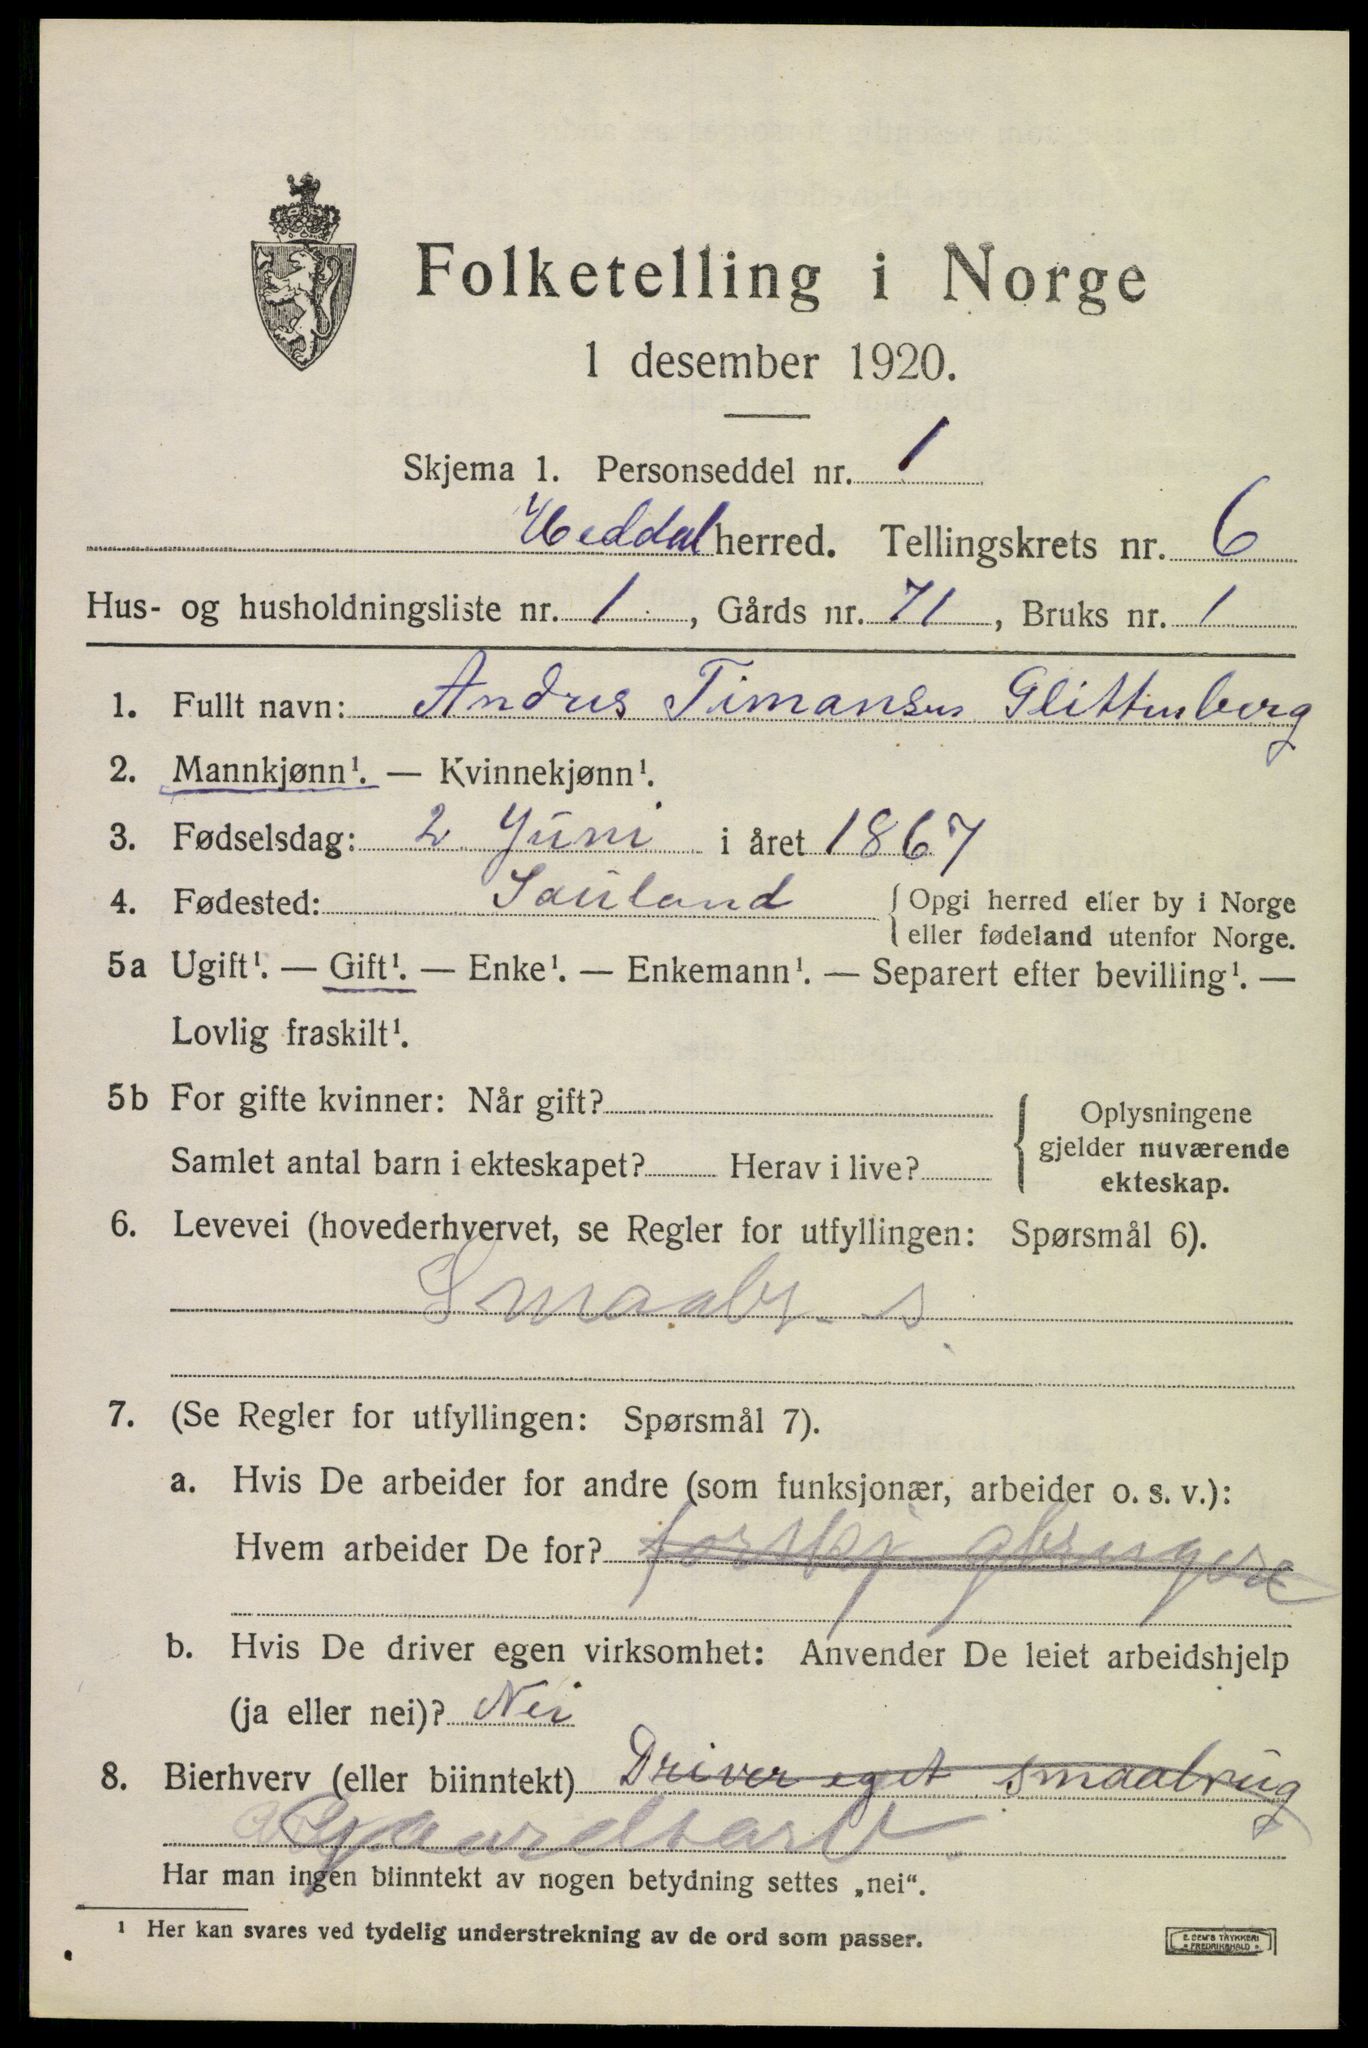 Folketelling i Norge
1 desember 1920.
Skjema 1. Personseddel nr. 1
Heddal herred. Tellingskrets nr. 6
Hus- og husholdningsliste nr. 1, Gårds nr. 71, Bruks nr. 1
1. Fullt navn: Andres Timansen Glittenberg
2. Mannkjønn¹. — Kvinnekjønn¹.
3. Fødselsdag: 2 Juni i året 1867
4. Fødested: Sauland { Opgi herred eller by i Norge
eller fødeland utenfor Norge.
5a Ugift¹. — Gift¹. — Enke¹. — Enkemann¹. — Separert efter bevilling¹. —
Lovlig fraskilt¹.
5b For gifte kvinner: Når gift?
Samlet antal barn i ekteskapet? Herav i live?
{ Oplysningene
gjelder nuværende
ekteskap.
6. Levevei (hovederhvervet, se Regler for utfyllingen: Spørsmål 6).
Smaabr. s
7. (Se Regler for utfyllingen: Spørsmål 7).
a. Hvis De arbeider for andre (som funksjonær, arbeider o. s. v.):
Hvem arbeider De for? forskj
b. Hvis De driver egen virksomhet: Anvender De leiet arbeidshjelp
(ja eller nei)? Nei
8. Bierhverv (eller biinntekt) Driver eget smaabrug
Gaardsarb.
Har man ingen biinntekt av nogen betydning settes „nei“.
¹ Her kan svares ved tydelig understrekning av de ord som passer.
E. SEM'S TRYKKERI
FREDRIKSHALD